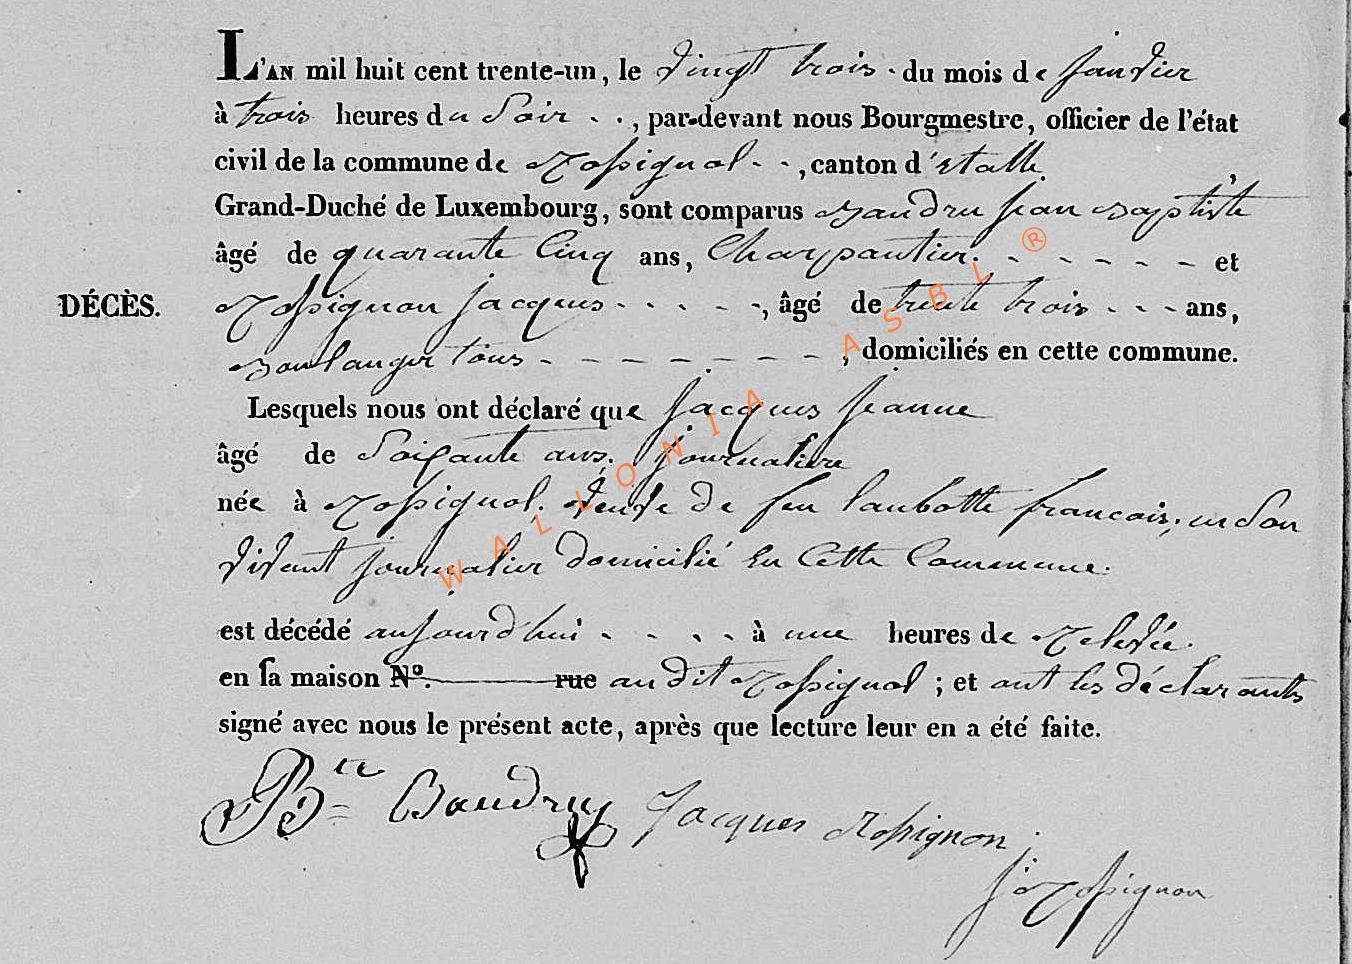 L'AN mil huit cent trente-un, le vingt trois . du mois de janvier
à trois heures du Soir . . , par-devant nous Bourgmestre, officier de l'état
civil de la commune de Rossignol - - , canton d'Etalle.
Grand-Duché de Luxembourg, sont comparus Baudru jean Baptiste
âgé de quarante Cinq ans, Charpantier. - - - - - - et
DÉCÈS. Rossignon jacques - - - - - , âgé de trente trois - - - ans,
Boulanger tous - - - - - - - - , domiciliés en cette commune.
Lesquels nous ont déclaré que jacques jeanne
âgé de Soixante ans. journaliere
née à Rossignol. veuve de feu Laubotte francois, en Son
vivant journalier domicilié En Cette Commune.
est décédé aujourd'hui - - - - à une heures de Relevée.
en sa maison N°. rue audit Rossignol ; et ont les déclarants
signé avec nous le présent acte, après que lecture leur en a été faite.
Bte Baudruy Jacques Rossignon
j Rossignon
WALLONIA ASBL ®